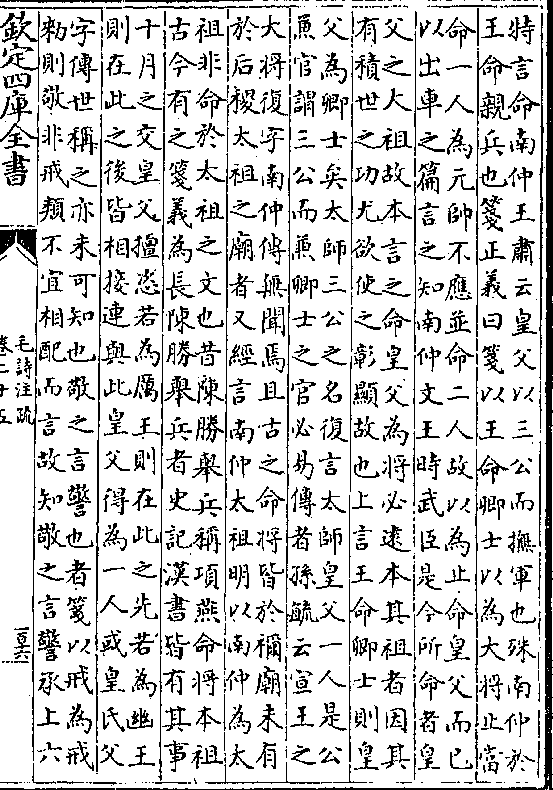 特言命南仲王肅云皇父以三公而撫軍也殊南仲於
王命親兵也箋正義曰箋以王命卿士以為大將止當
命一人為元帥不應並命二人故以為止命皇父而已
以出車之篇言之知南仲文王時武臣是今所命者皇
父之大祖故本言之命皇父為將必逺本其祖者因其
有積世之功尤欲使之彰顯故也上言王命卿士則皇
父為卿士矣太師三公之名復言太師皇父一人是公
兼官謂三公而兼卿士之官必易傳者孫毓云宣王之
大將復字南仲傳無聞焉且古之命將皆於禰廟未有
於后稷太祖之廟者又經言南仲太祖明以南仲為太
祖非命於太祖之文也昔陳勝舉兵稱項燕命將本祖
古今有之箋義為長陳勝舉兵者史記漢書皆有其事
十月之交皇父擅恣若為厲王則在此之先若為幽王
則在此之後皆相接連與此皇父得為一人或皇氏父
字傳世稱之亦未可知也敬之言警也者箋以戒為戒
勑則敬非戒類不宜相配而言故知敬之言警承上六
欽定四庫全書
毛詩注疏
卷二十五